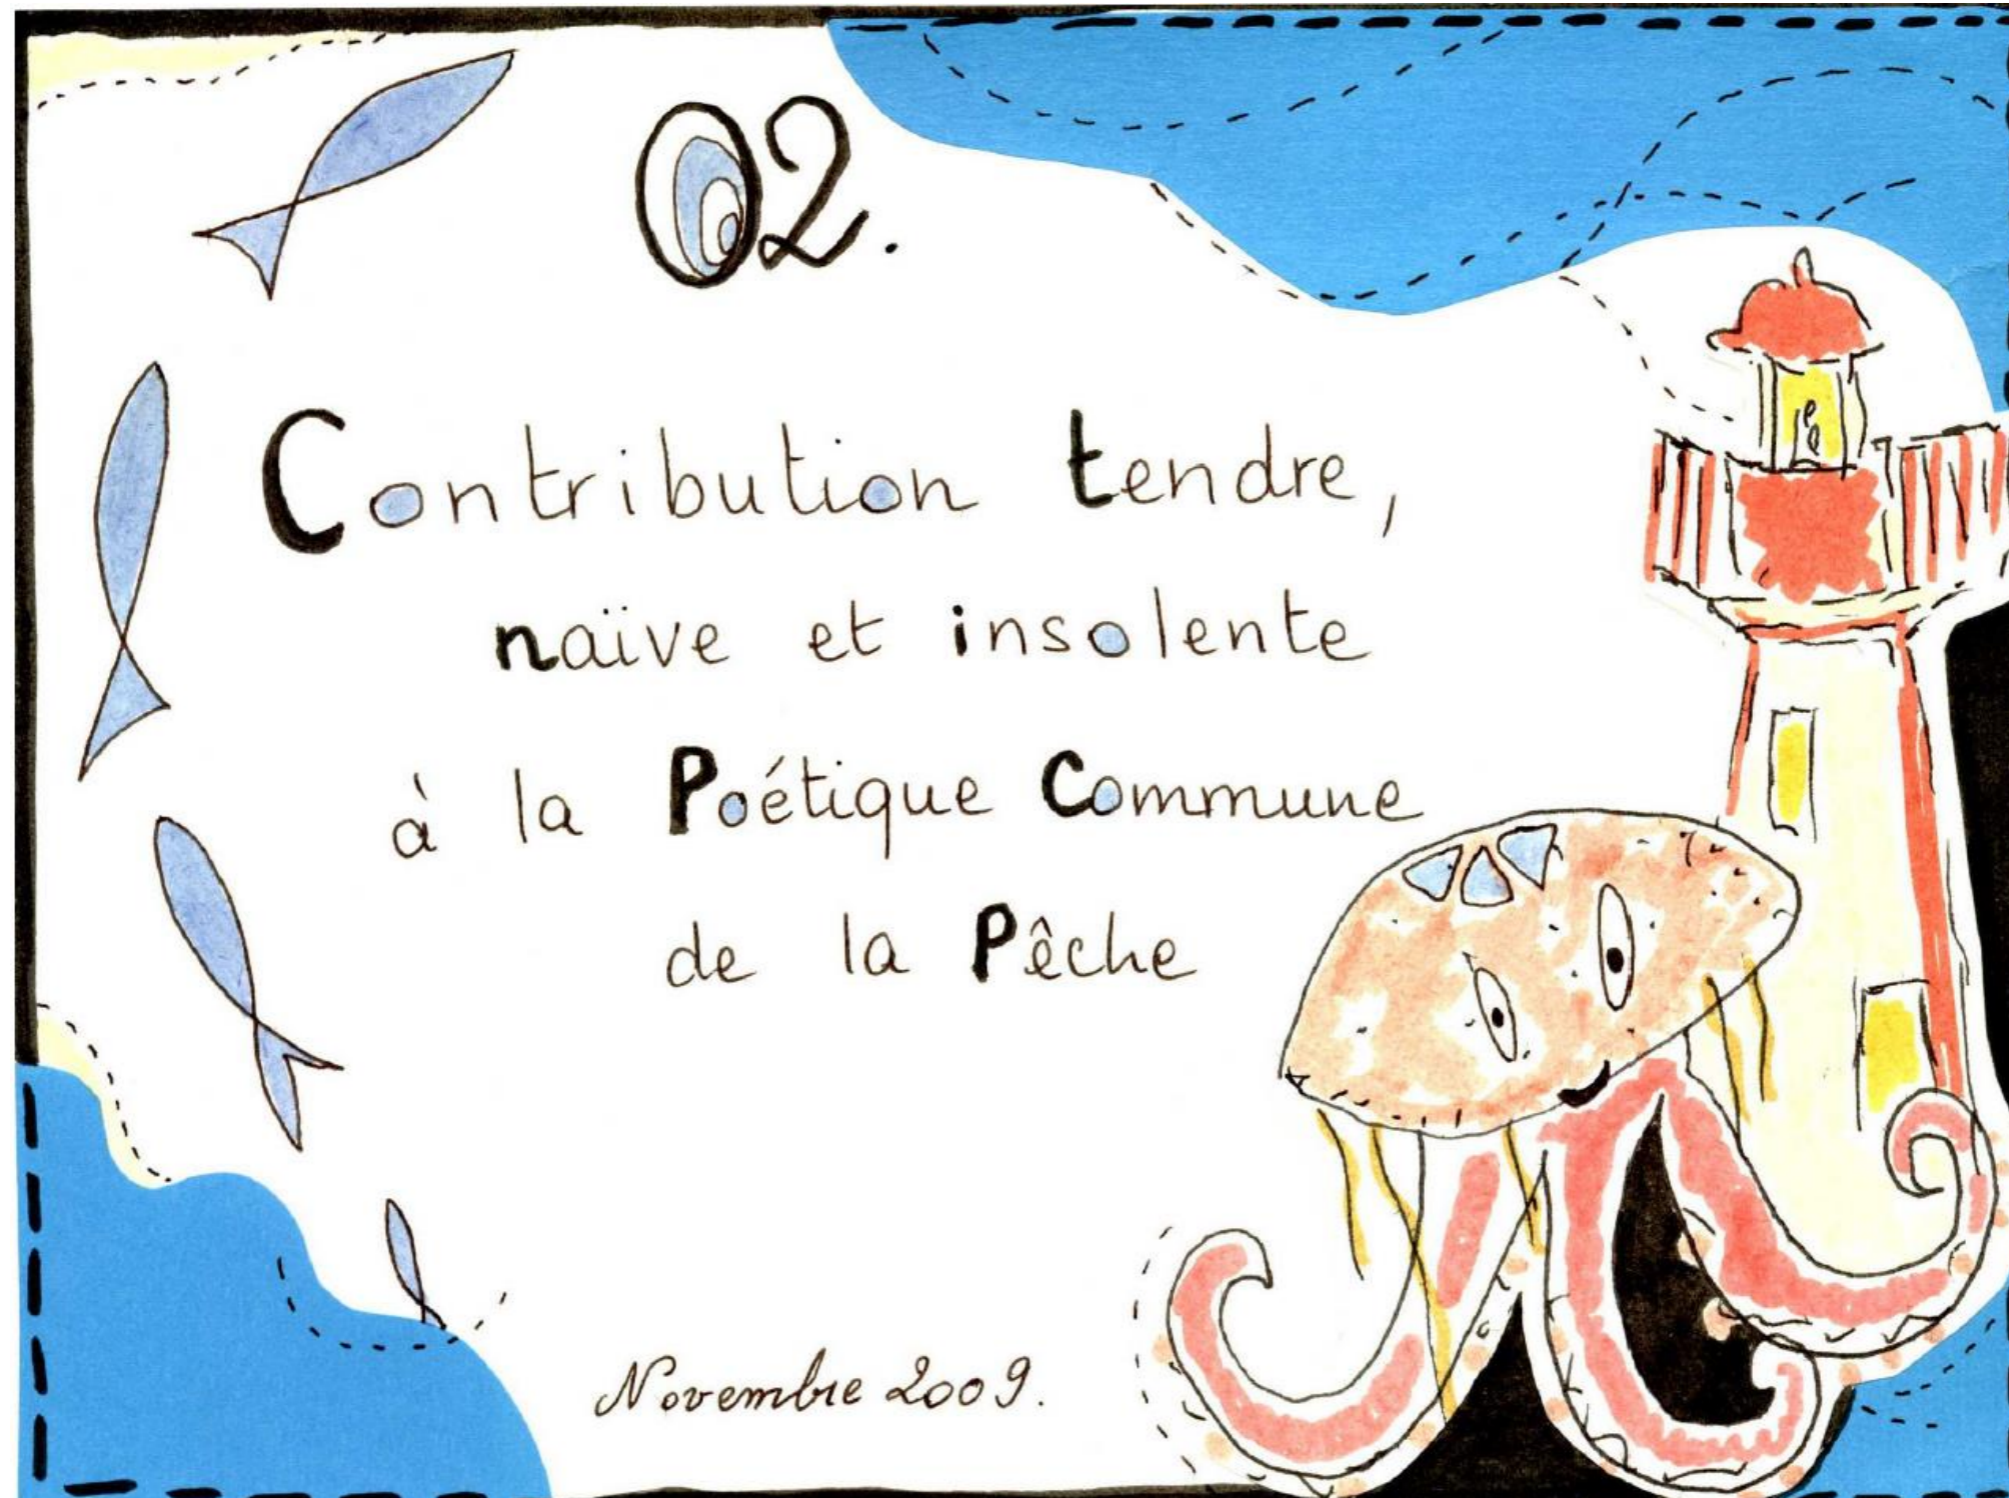 02.
Contribution tendre,
naïve et insolente
à la Poétique Commune
de la Pêche
Novembre 2009.